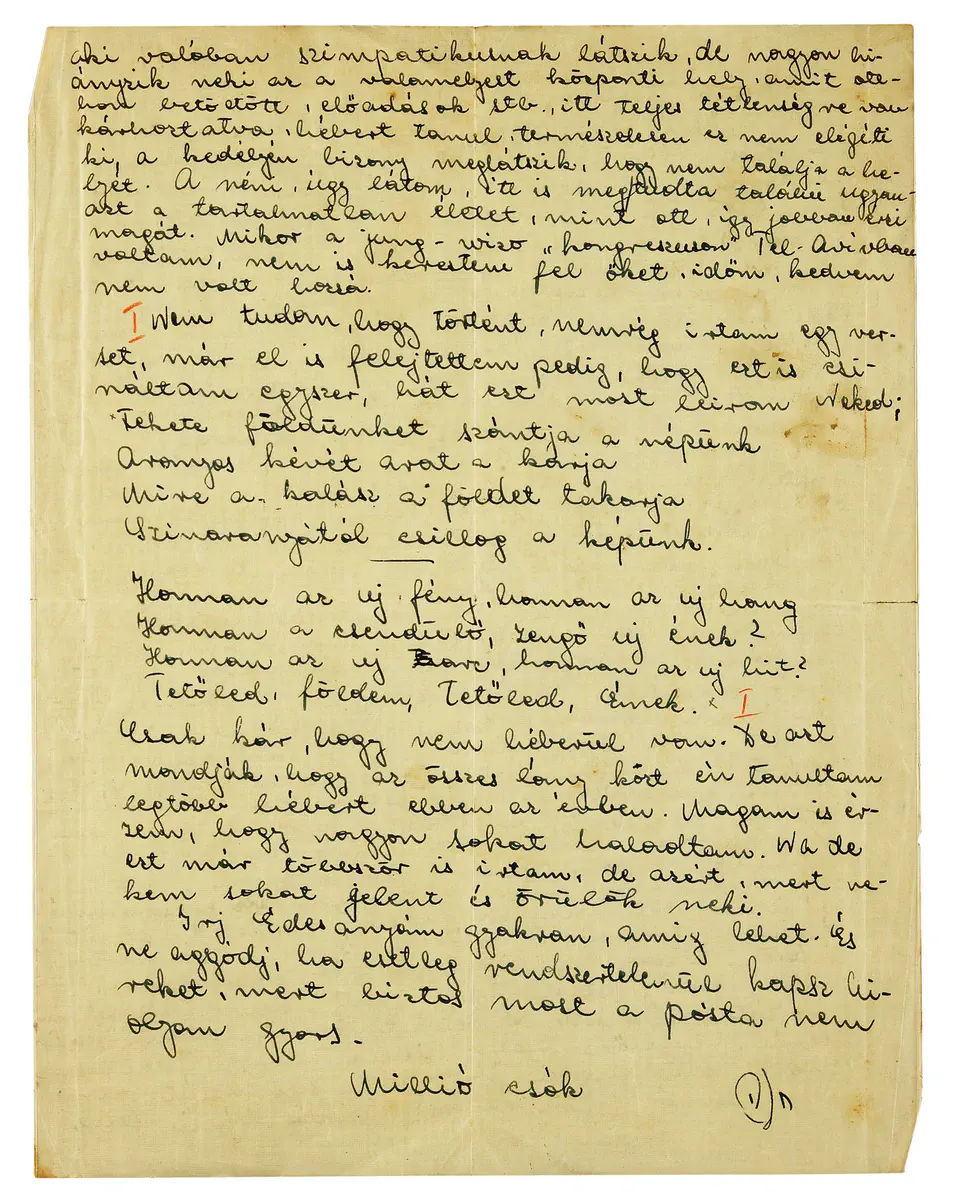 aki valóban szimpatikusnak látszik, de nagyon hi-
ányzik neki az a valamelyest központi hely, amit ott-
hon betöltött, előadások stb., itt teljes tétlenségre van
kárhoztatva, hébert tanul, természetesen ez nem elégíti
ki, a kedélyén bizony meglátszik, hogy nem találja a he-
lyét. A néni, úgy látom, itt is megtudta találni ugyan-
azt a tartalmatlan életet, mint ott, így jobban érzi
magát. Mikor a jung-wizo „kongresszuson" Tel-Avivban
voltam, nem is kerestem fel őket, időm, kedvem
nem volt hozzá.
I Nem tudom, hogy történt, nemrég irtam egy ver-
set, már el is felejtettem pedig, hogy ezt is csi-
náltam egyszer, hát ezt most leirom Neked;
"Fekete földünket szántja a népünk
Aranyos kévét arat a karja
Mire a kalász a földet takarja
Szinaranyától csillog a képünk.
Honnan az uj fény, honnan az uj hang
Honnan a csendülő, zengő uj ének?
Honnan az uj harc, honnan az uj hit?
Tetőled, földem, Tetőled, Émek." I
Csak kár, hogy nem héberül van. De azt
mondják, hogy az összes lány közt én tanultam
legtöbb hébert ebben az évben. Magam is ér-
zem, hogy nagyon sokat haladtam. Na de
ezt már többször is irtam, de azért, mert ne-
kem sokat jelent és örülök neki.
Irj Édesanyám gyakran, amig lehet. És
ne aggódj, ha esetleg rendszertelenül kapsz hi-
reket, mert biztos most a pósta nem
olyan gyors.
Millió csók